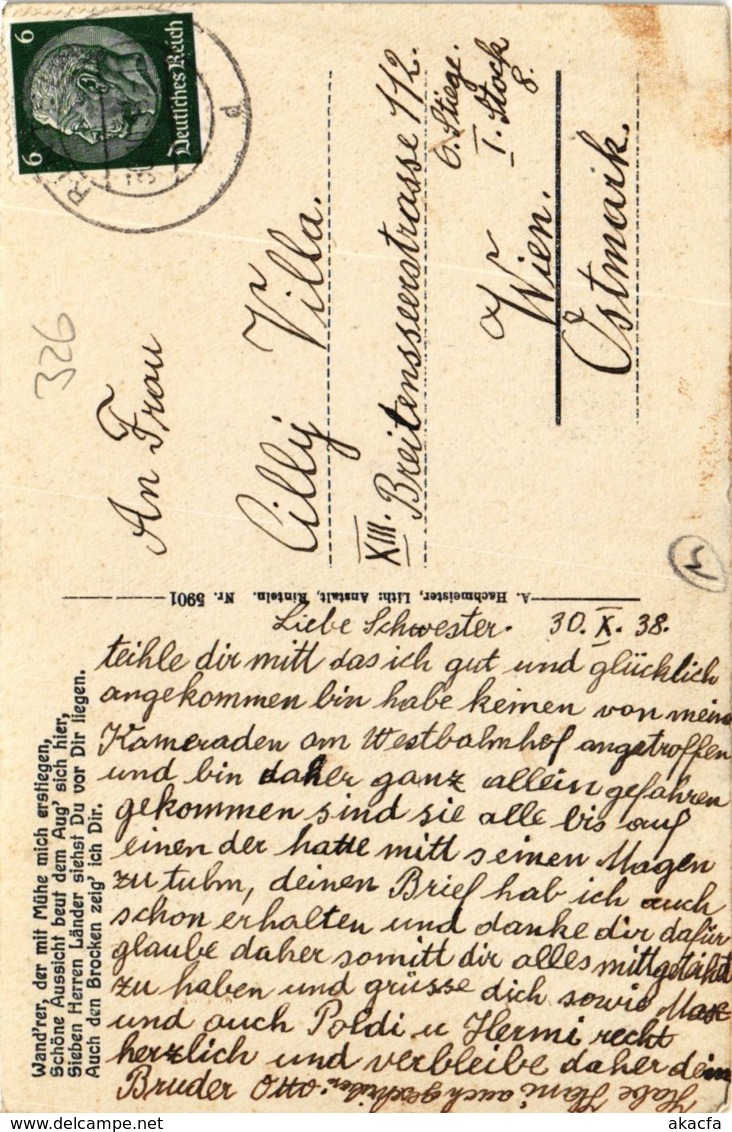 6
6
Deutsches Reich
d
326
An Frau
Cilly Villa.
XIII. Breitenseerstrasse 112.
6. Stiege.
I. Stock
8.
Wien.
Ostmark.
A. Hachmeister, Lith: Anstalt, Rinteln. Nr. 5901
Wand'rer, der mit Mühe mich erstiegen,
Schöne Aussicht beut dem Aug' sich hier,
Sieben Herren Länder siehst Du vor Dir liegen.
Auch den Brocken zeig' ich Dir.
Liebe Schwester. 30. X. 38.
teihle dir mitt das ich gut und glücklich
angekommen bin habe keinen von meine
Kameraden am Westbalmhof angetroffen
und bin daher ganz allein gefahren
gekommen sind sie alle bis auf
einen der hatte mitt seinen Magen
zu tuhm, deinen Brief hab ich auch
schon erhalten und danke dir dafür
glaube daher somitt dir alles mittgeteihlt
zu haben und grüsse dich sowie Max
und auch Poldi u Hermi recht
herzlich und verbleibe daher dein
Bruder Otto
Habe Hani auch geschrieben
akacfa